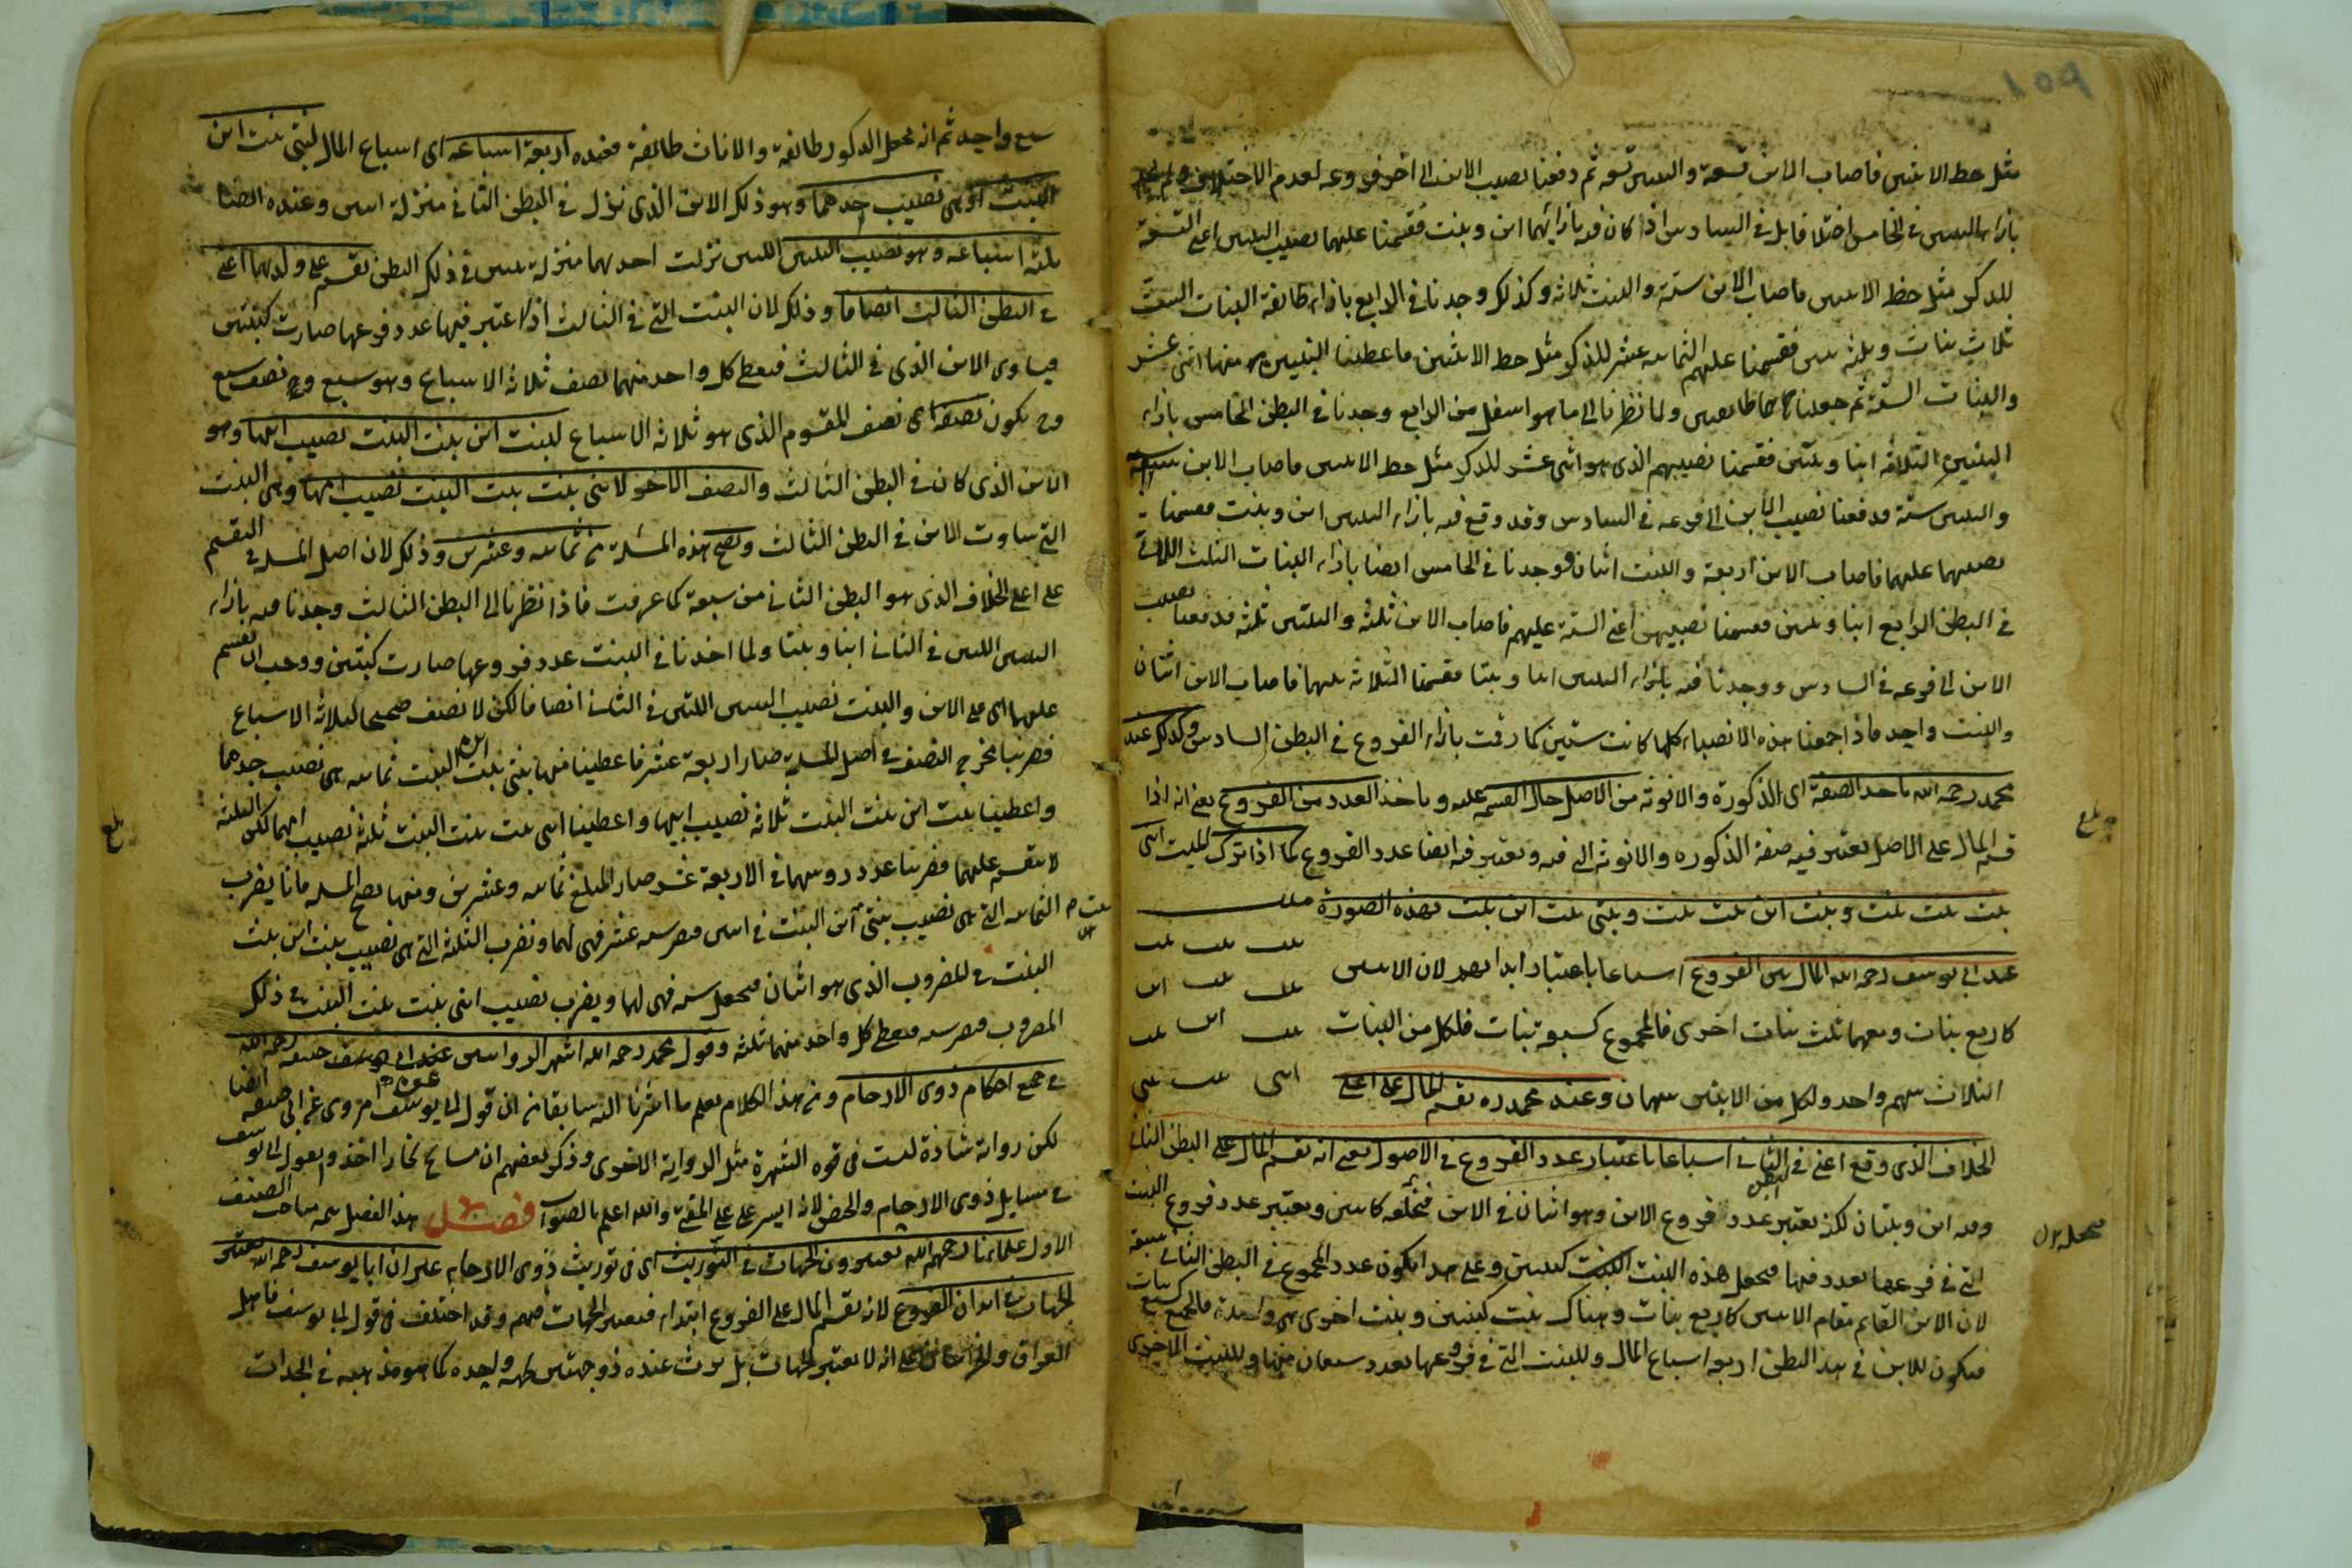 مثل حظ الانثيين فاصاب الابن تسعة والبنتين تسعة ثم دفعنا نصيب الابن الى اخر فروعه لعدم الاختلاف
بازاء البنتين في الخامس اختلاف بل في السادس اذا كان فيه بازائهما ابن وبنت فقسمنا عليهما نصيب البنتين اعنى التسعة
للذكر مثل حظ الانثيين فاصاب الابن ستة والبنت ثلاثة وكذلك وجدنا في الرابع بازاء طائفة البنات الست
ثلاث بنات وثلثة بنين فقسمنا عليهم الثمانية عشر للذكر مثل حظ الانثيين فاعطينا البنين منها اثنى عشر
والبنات الستة ثم جعلناهما طائفتين ولما نظرنا الى ما هو اسفل من الرابع وجدنا في البطن الخامس بازاء
البنين الثلاثة ابنا وبنتين فقسمنا نصيبهم الذي هو اثنى عشر للذكر مثل حظ الانثيين فاصاب الابن ستة
والبنتين ستة فدفعنا نصيب الابن الى فرعه في السادس وقد وقع فيه بازاء البنتين ابن وبنت فقسمنا
نصيبهما عليهما فاصاب الابن اربعة والبنت اثنان ووجدنا في الخامس ايضا بازاء البنات الثلث اللاتي
في البطن الرابع ابنا وبنتين فقسمنا نصيبهن اعنى الستة عليهم فاصاب الابن ثلثة والبنتين ثلثة فدفعنا نصيب
الابن الى فرعه في السادس ووجدنا فيه بازاء البنتين ابنا وبنتا فقسمنا الثلاثة عليهما فاصاب الابن اثنان
والبنت واحد فاذا جمعنا هذه الانصباء كلها كانت ستين كما رقمت بازاء الفروع في البطن السادس وكذلك عند
محمد رحمه الله ياخذ الصفة اى الذكورة والانوثة من الاصل حال القسم عليه وياخذ العدد من الفروع يعنى انه اذا
قسم المال على الاصل يعتبر فيه صفة الذكورة والانوثة التى فيه ويعتبر فيه ايضا عدد الفروع كما اذا ترك الميت ابنى
بنت بنت بنت وبنت ابن بنت بنت وبنتى بنت ابن بنت بهذه الصورة ميت
بنت بنت بنت
عند ابى يوسف رحمه الله المال بين الفروع اسباعا باعتبار ابدانهم لان الابنين
بنت بنت ابن
كاربع بنات ومعهما ثلث بنات اخرى فالمجموع كسبع بنات فلكل من البنات
بنت ابن بنت
الثلاث سهم واحد ولكل من الابنين سهمان وعند محمد ره يقسم المال على اعلى
ابنى بنت بنتى
الخلاف الذي وقع اعنى في البطن الثانى اسباعا باعتبار عدد الفروع في الاصول يعنى انه يقسم المال على البطن الثانى
وفيه ابن وبنتان لكن يعتبر عدد فروع الابن وهو اثنان في الابن فنجعله كابنين ويعتبر عدد فروع البنت
التى في فرعها تعدد فيها فنجعل هذه البنت كبنتين وعلى هذا يكون عدد المجموع في البطن الثانى سبعة
لان الابن القائم مقام الابنين كاربع بنات وهناك بنت كبنتين وبنت اخرى هى واحدة فالجميع كسبع بنات
فيكون للابن في هذا البطن اربعة اسباع المال وللبنت التى في فروعها تعدد سبعان منها وللبنت الاخرى
بلغ
سبع واحد ثم انه نجعل الذكور طائفة والاناث طائفة فعنده اربعة اسباعه اى اسباع المال لبنتى بنت ابن
البنت اذ هى نصيب جدهما وهو ذلك الابن الذي نزل في البطن الثانى منزلة ابنين وعنده ايضا
ثلثة اسباعه وهو نصيب البنتين اللتين نزلت احديهما منزلة بنتين في ذلك البطن يقسم على ولديهما اعنى
في البطن الثالث انصافا وذلك لان البنت التى في الثالث اذا اعتبر فيها عدد فروعها صارت كبنتين
فيساوى الابن الذي في الثالث فنعطى كل واحد منهما نصف ثلاثة الاسباع وهو سبع ونصف سبع
وح يكون نصفه اى نصف المقسوم الذي هو ثلاثة الاسباع لبنت ابن بنت البنت نصيب ابيها وهو
الابن الذي كان في البطن الثالث والنصف الاخر لابنى بنت بنت البنت نصيب امهما وهى البنت
التى ساوت الابن في البطن الثالث وتصح هذه المسئلة من ثمانية وعشرين وذلك لان اصل المسئلة في التقسيم
على اعلى الخلاف الذي هو البطن الثانى من سبعة كما عرفت فاذا نظرنا الى البطن الثالث وجدنا فيه بازاء
البنتين اللتين في الثانى ابنا وبنتا ولما اخذنا في البنت عدد فروعها صارت كبنتين ووجب ان نقسم
عليهما اى على الابن والبنت نصيب البنتين اللتين في الثانى انصافا لكن لا نصف صحيحا لثلاثة الاسباع
فضربنا مخرج النصف في اصل المسئلة صار اربعة عشر فاعطينا منها بنتى بنت ابن البنت ثمانية هى نصيب جدهما
واعطينا بنت ابن بنت البنت ثلاثة نصيب ابيها واعطينا ابنى بنت بنت البنت ثلثة نصيب امهما لكن الثلثة
لا تنقسم عليهما فضربنا عدد رؤسهما في الاربعة عشر صار المبلغ ثمانية وعشرين ومنها تصح المسئلة فانا نضرب
الثمانية التى هى نصيب بنتى بنت ابن البنت في اثنين فيصير ستة عشر فهى لهما ونضرب الثلثة التى هى نصيب بنت ابن بنت
البنت في المضروب الذي هو اثنان فيحصل ستة فهى لها ويضرب نصيب ابنى بنت بنت البنت في ذلك
المضروب فيصير ستة فيعطى كل واحد منهما ثلثة وقول محمد رحمه الله اشهر الروايتين عن ابى حنيفة رحمه الله
في جميع احكام ذوى الارحام ومن هذا الكلام يعلم ما اشرنا اليه سابقا من ان قول ابى يوسف مروى عن ابى حنيفة ايضا
لكن رواية شاذة ليست في قوة الشهرة مثل الرواية الاخرى وذكر بعضهم ان مشايخ بخارا اخذوا بقول ابى يوسف
في مسايل ذوى الارحام والحيض لانه ايسر على المفتى والله اعلم بالصواب فصل هذا الفصل
الاول علماؤنا رحمهم الله يعتبرون الجهات في التوريث اى في توريث ذوى الارحام غير ان ابا يوسف رحمه الله يعتبر
الجهات في ابدان الفروع لانه يقسم المال على الفروع ابتداء فيعتبر الجهات فيهم وقد اختلف في قول ابى يوسف فاهل
العراق وخراسان على انه لا يعتبر الجهات بل يرث عنده ذو جهتين بجهة واحدة كما هو مذهبه في الجدات
بلغ